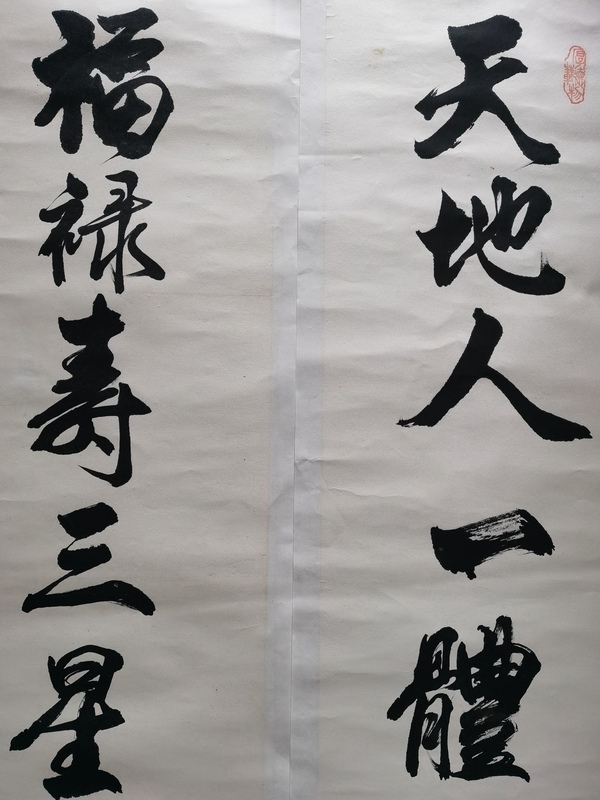 天地人一體
福禄寿三星